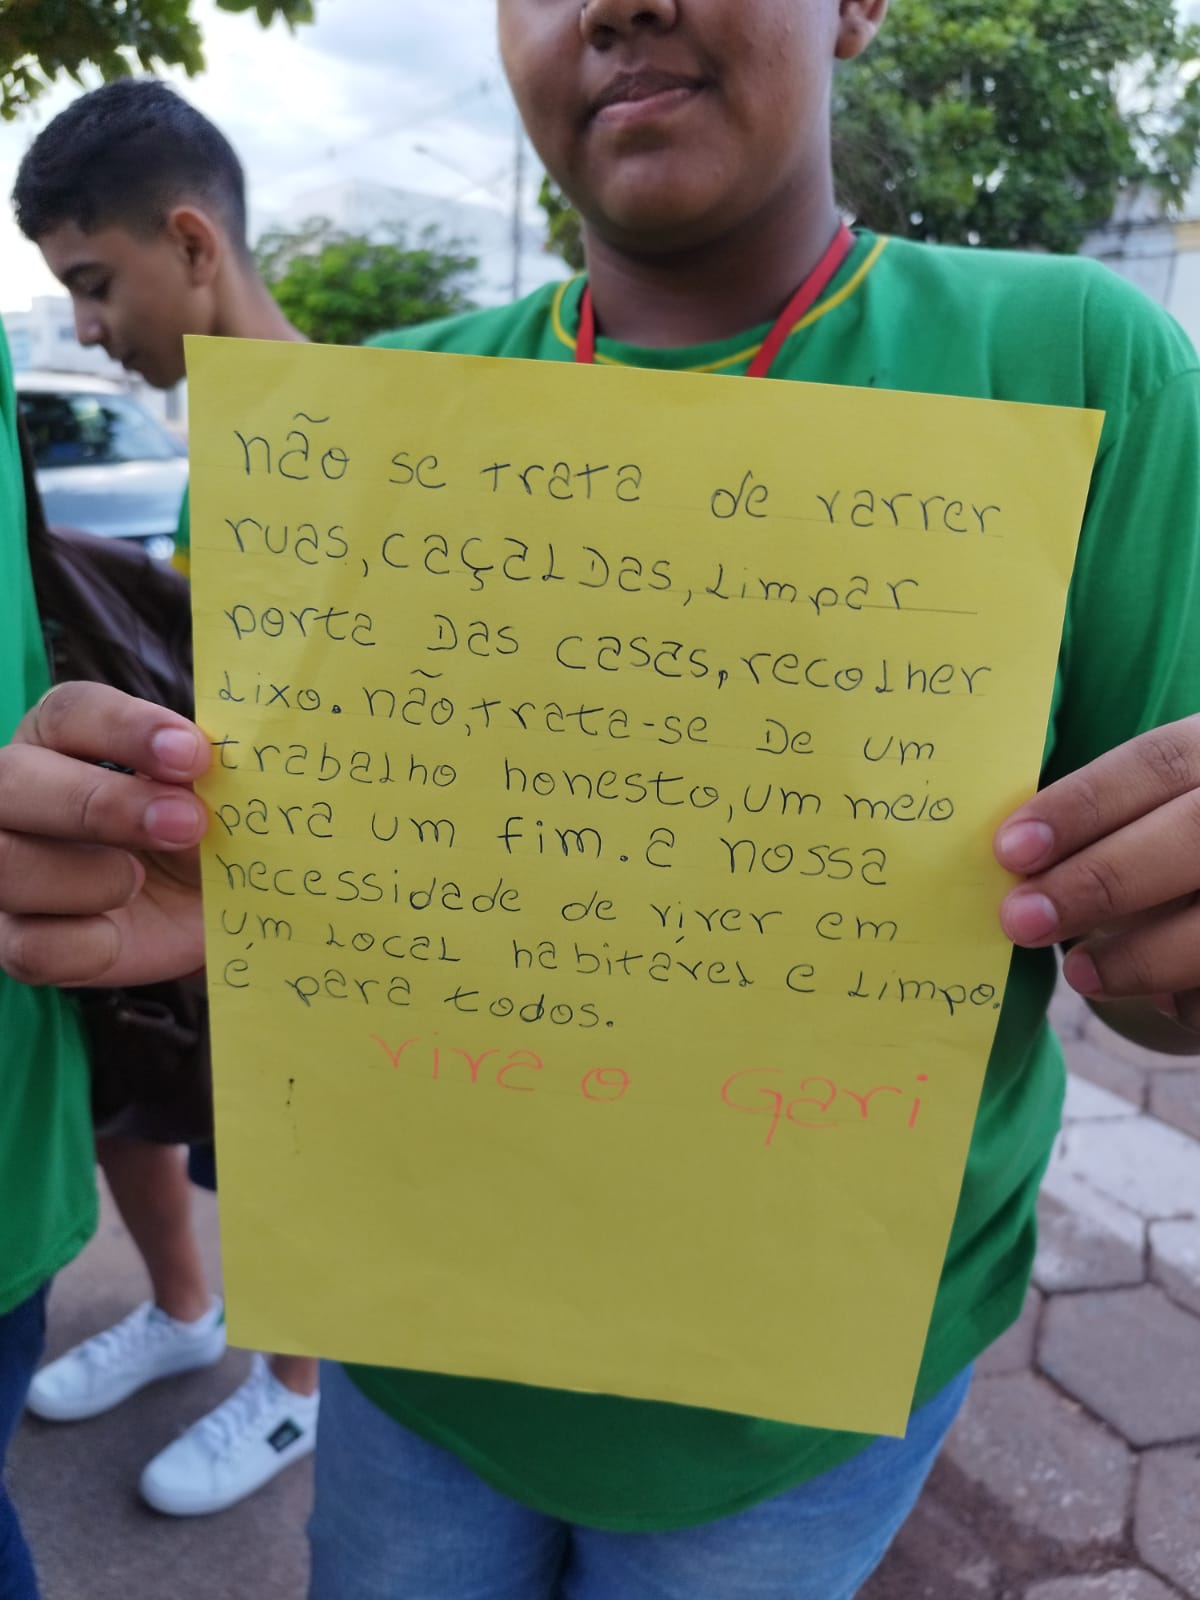 não se trata de varrer
ruas, caçaldas, limpar
porta das casas, recolher
lixo. não, trata-se de um
trabalho honesto, um meio
para um fim. a nossa
necessidade de viver em
um local habitável e limpo.
é para todos.
viva o Gari